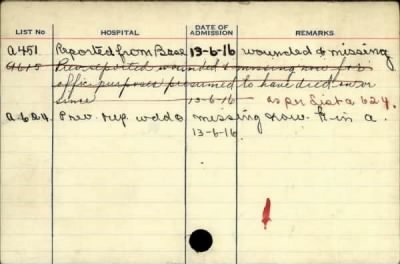 LIST No HOSPITAL DATE OF ADMISSION REMARKS
A451. Reported from Base 13-6-16 wounded & missing
A615 Prev. reported wounded & missing now for
offic. purposes presumed to have died on or
since 13-6-16 as per List a 624.
A.624. Prev. rep. wdd & missing now k in a.
13-6-16.